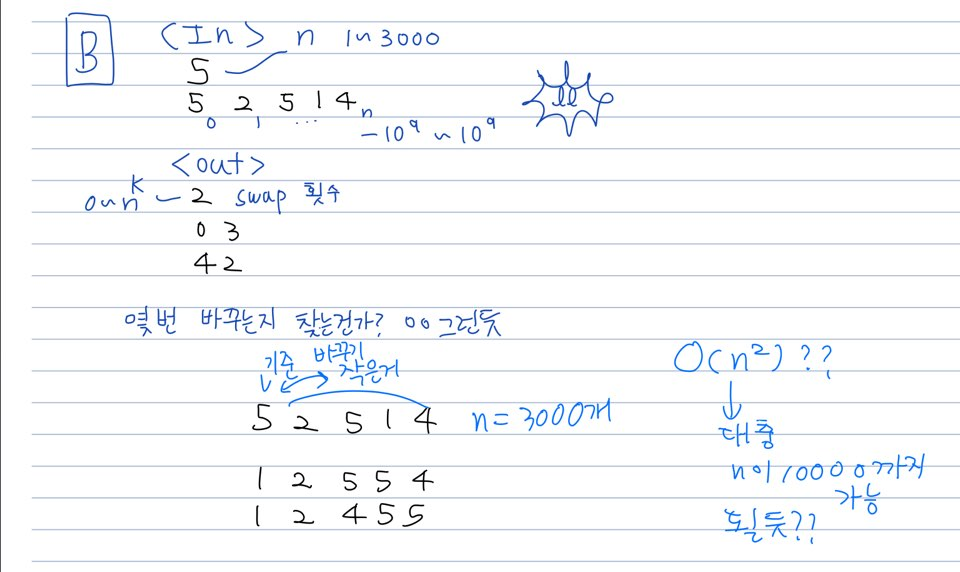 B
<In> n 1~3000
5
5 2 5 1 4 n
0 1 ...
-10^9 ~ 10^9
<out>
0~n k 2 swap 횟수
0 3
4 2
몇번 바꾸는지 찾는건가? ㅇㅇ그런듯
기준 바꾸기
작은거
5 2 5 1 4 n=3000개
1 2 5 5 4
1 2 4 5 5
O(n²)??
대충
n이 10000까지
가능
될듯??